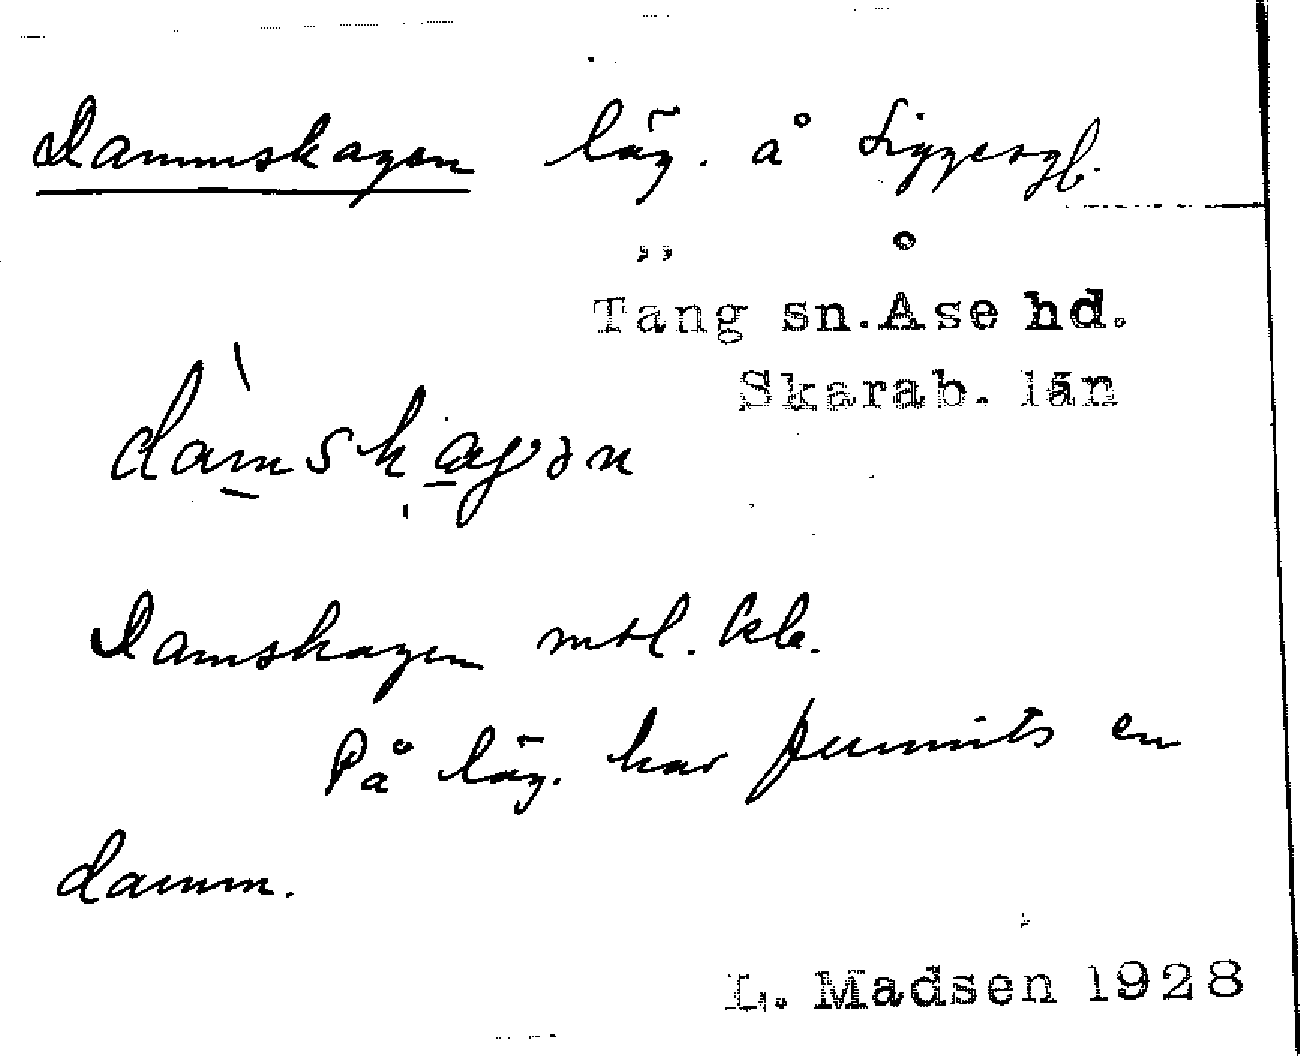 Dammskagen läg. å Siggesgb.
Täng sn. Åse hd.
Skarab. län
dàmskagən
Damskagen mtl. kb.
På läg. har funnits en
damm.
L. Madsen 1928